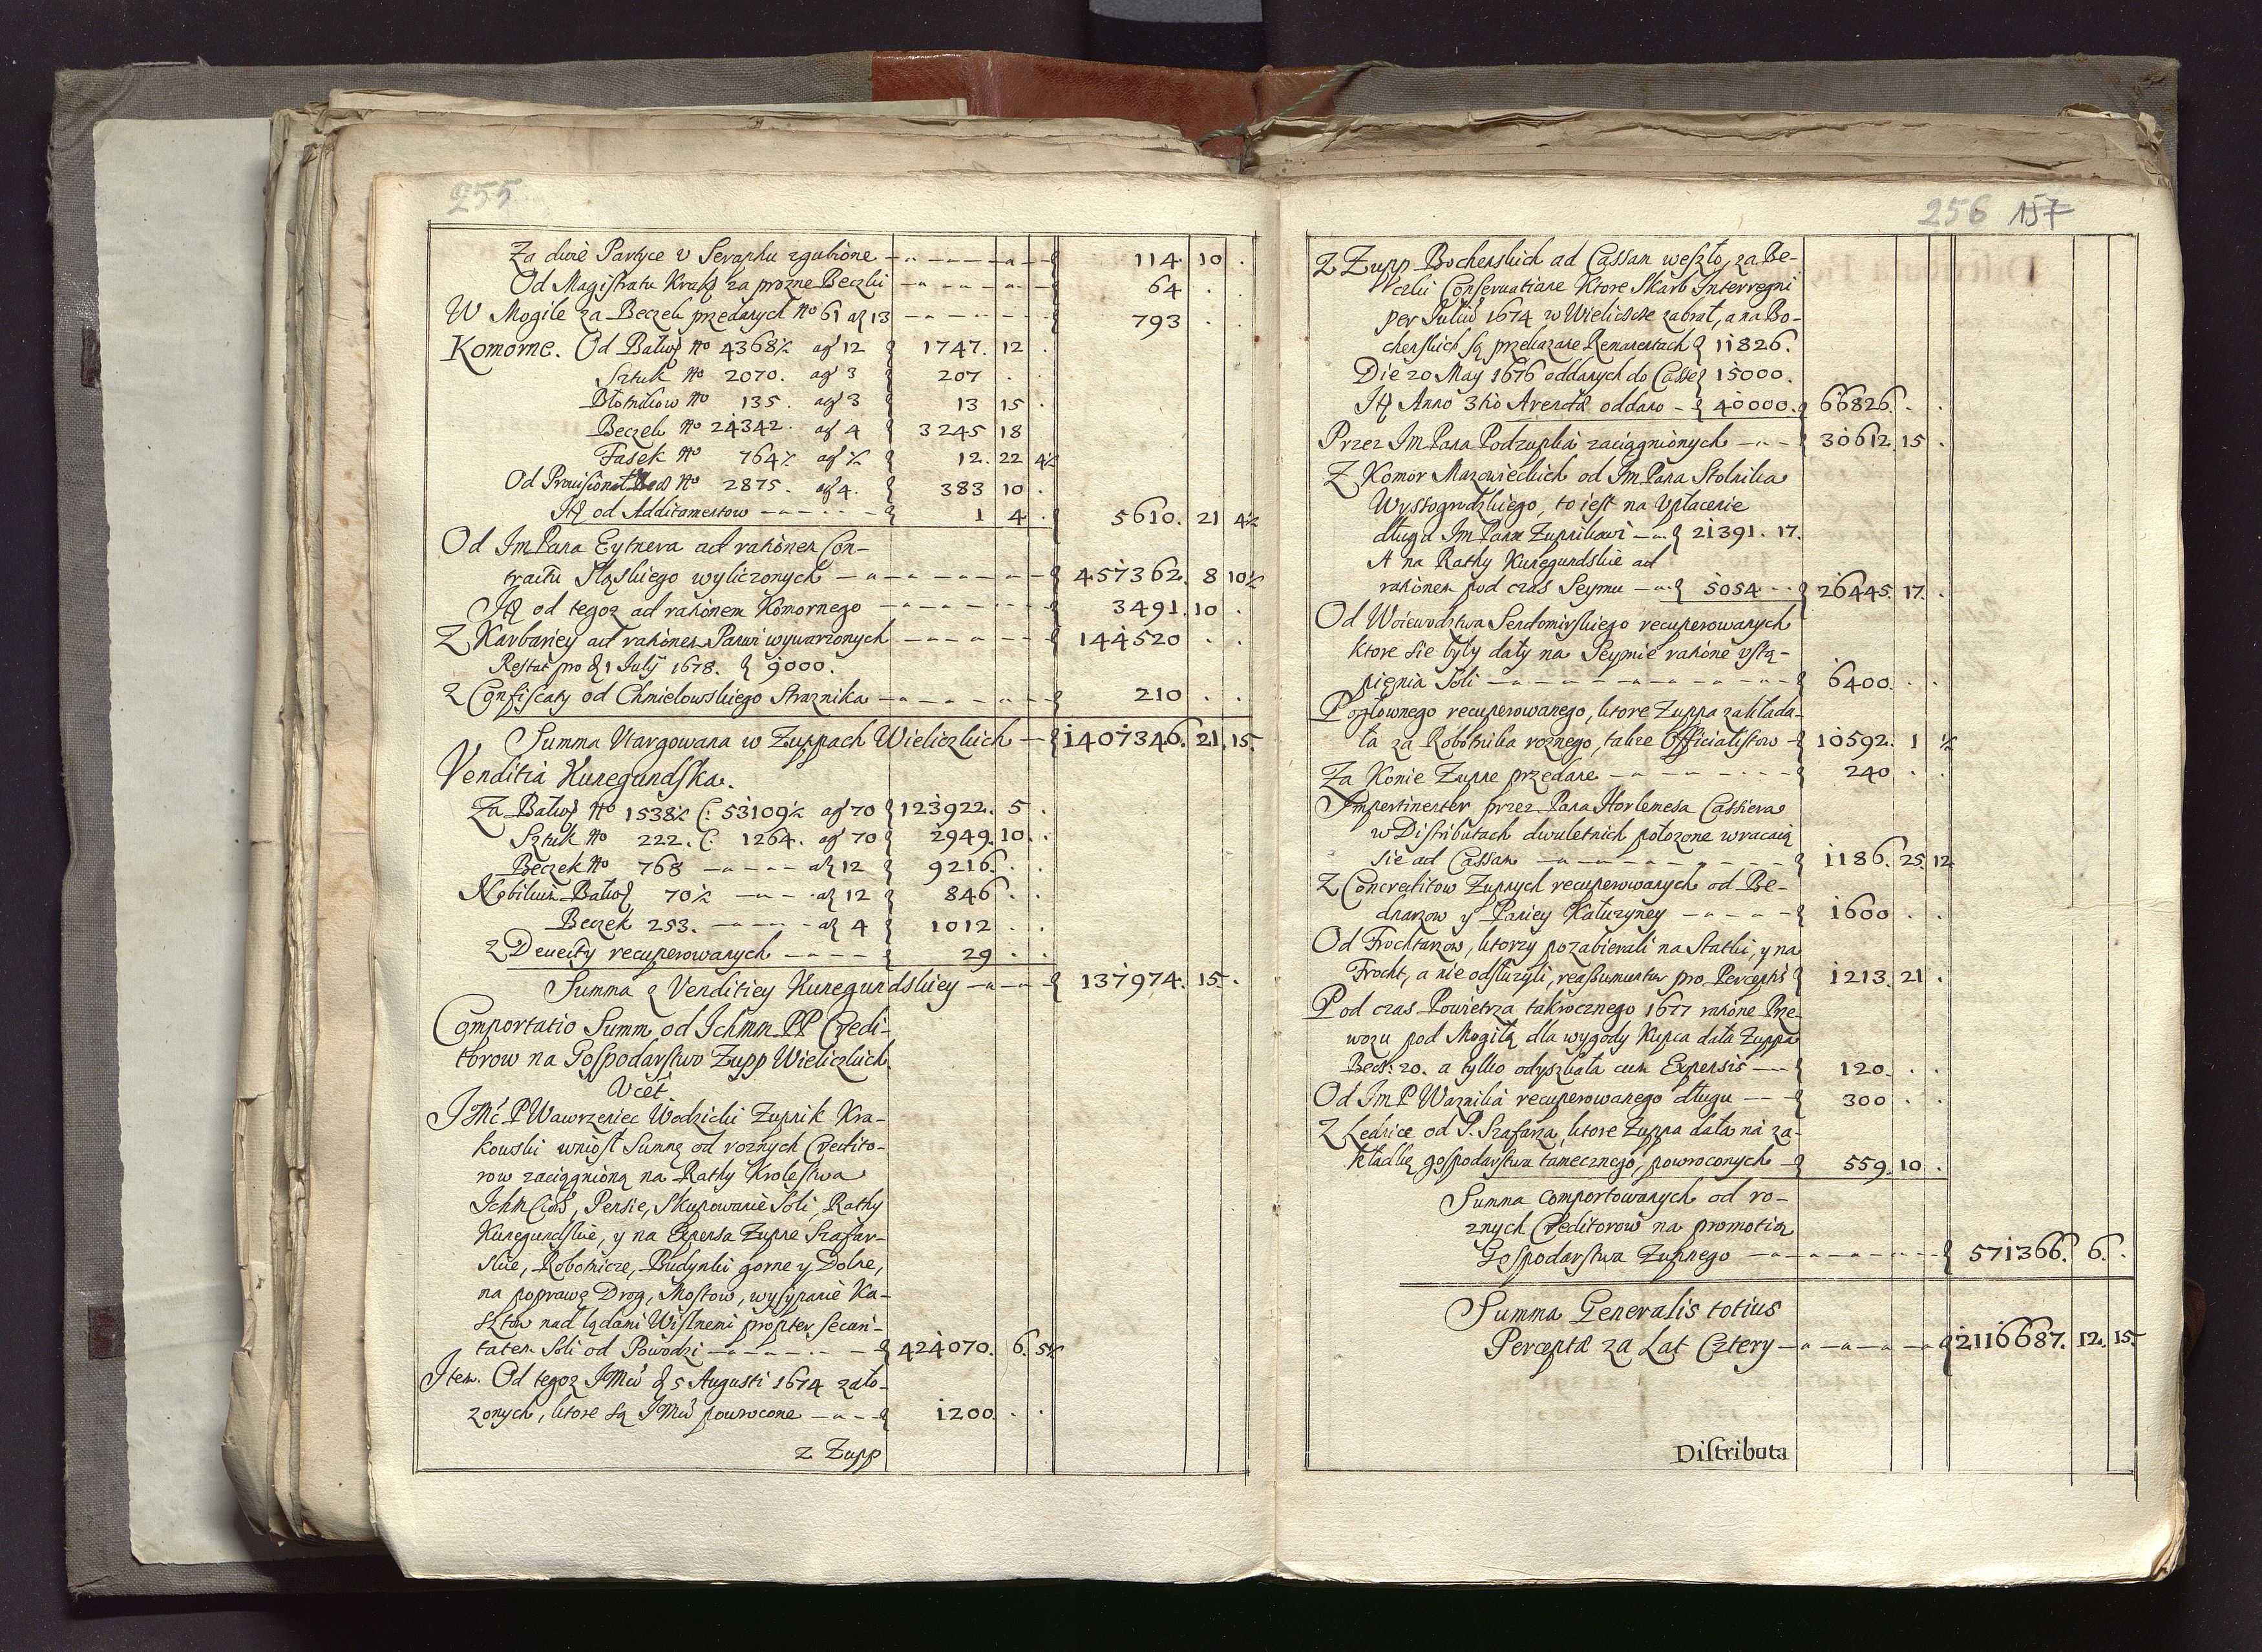 255
Za dwie Partyce v Seraphu zgubione 114 10 .
Od Magistratu Krak za prozne Beczki 64 . .
W Mogile za Beczek przedanych No 61 aƶ 13 793 . .
Komorne. Od Bałw No 4368½ aƶ 12 1747. 12 .
Sztuk No 2070. aƶ 3 207 . .
Błotnikow No 135. aƶ 3 13 15 .
Beczek No 24342. aƶ 4 3245 18
Fasek No 764½ aƶ ½ 12. 22 4½
Od Provisionat Becz No 2875. aƶ 4. 383 10 .
It od Additamentow 1 4 . 5610. 21 4½
Od Jm Pana Eytnera ad rationem Con-
tractu Sląskiego wyliczonych 457362. 8 10½
It od tegoz ad rationem Komornego 3491. 10 .
Z Karbariey ad rationem Panwi wywarzonych 144520 . .
Restat pro d 1 Julij 1678. 9000.
Z Confiscaty od Chmielowskiego Straznika 210 . .
Summa Utargowana w Zuppach Wielickich 1407346. 21. 15.
Venditia Kunegundska.
Za Bałw No 1538½ C: 53109½ aƶ 70 123922. 5 .
Sztuk No 222. C: 1264. aƶ 70 2949. 10 .
Beczek No 768 aƶ 12 9216 . .
Nobilium Bałw 70½ aƶ 12 846 . .
Beczek 253. aƶ 4 1012 . .
Z Deuecty recuperowanych 29 . .
Summa z Venditiey Kunegundskiey 137974. 15 .
Comportatio Summ od Ichmm PP Credi-
torow na Gospodarstwo Zupp Wielickich.
Vcet
J Mć P Wawrzeniec Wodzicki Zupnik Kra-
kowski wniosł Summę od roznych Credito-
row zaciągnioną na Rathy Krolestwa
Ichm Ciow, Pensie, Skupowanie Soli, Rathy
Kunegundskie, y na Expensa Zupne Szafar-
skie, Robotnicze, Budynki gorne y Dolne,
na poprawę Drog, Mostow, wysypanie Ka-
sztow nad lądami Wislnemi propter securi-
tatem Soli od Powodzi 424070. 6. 5½
Item. Od tegoz JMci d 5 Augusti 1674 zało-
zonych, ktore są JMci powrocone 1200. . .
z Zupp
256 157
Z Zupp Bochenskich ad Cassam weszło, za Be-
czki Conservatiane Ktore Skarb Interregni
per Julium 1674 w Wieliczce zabrał, a na Bo-
chenskich są przekazane Remanentach 11826.
Die 20 May 1676 oddanych do Casse 15000.
It Anno 3tio Arendæ oddano 40000. 66826. . .
Przez Jm Pana Podzupka zaciągnionych 30612. 15 .
Z Komor Mazowieckich od Jm Pana Stolnika
Wyssogrodzkiego, to iest na Vpłacenie
długu Jm Panu Zupnikowi 21391. 17.
A na Rathy Kunegundskie ad
rationem pod czas Seymu 5054. . 26445. 17. .
Od Woiewodztwa Sendomirskiego recuperowanych
ktore sie były dały na Seymie ratione vstą-
pienia Soli 6400. . .
Pogłownego recuperowanego, ktore Zuppa zakłada-
ła za Robotnika roznego, takze Officialistow 10592. 1 ½
Za Konie Zupne przedane 240 . .
Impertinenter przez Pana Horlemesa Cassiera
w Distributach dwuletnich połozone wracaią
sie ad Cassam 1186. 25. 12.
Z Concreditow Zupnych recuperowanych od Be-
dnarzow y Paniey Kałuzyney 1600 . .
Od Frochtarzow, ktorzy pozabierali na Statki, y na
Frocht, a nie odsłuzyli, reassumuntur pro Perceptis 1213. 21 .
Pod czas Powietrza takrocznego 1677 ratione Prze-
wozu pod Mogiłą dla wygody Kupca dała Zuppa
Becz: 20. a tylko odyszkała cum Expensis 120. . .
Od Jm P Waznika recuperowanego długu 300 . .
Z Lednice od P. Szafarza, ktore Zuppa dała na za-
kładkę gospodarstwa tamecznego, powroconych 559. 10 .
Summa comportowanych od ro-
znych Creditorow na promotią
Gospodarstwa Zupnego 571366. 6. .
Summa Generalis totius
Perceptæ za Lat Cztery 2116687. 12. 15.
Distributa